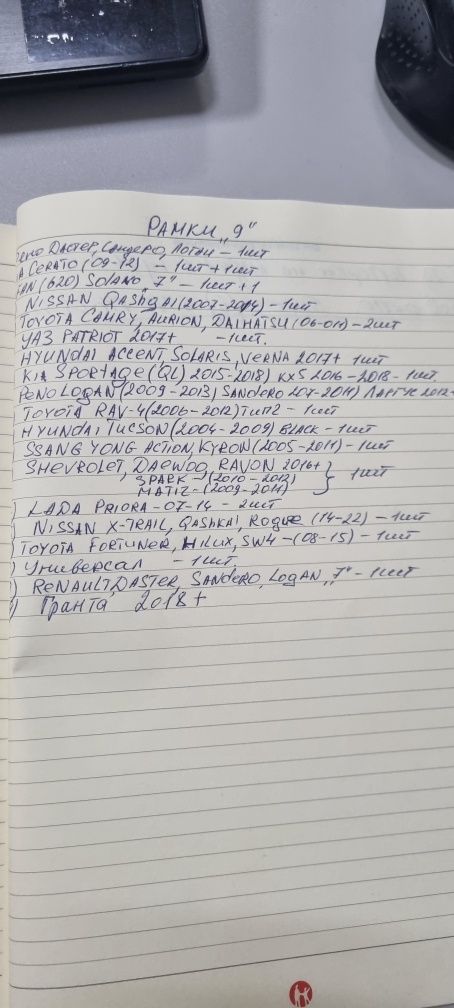 РАМКИ „9"
рено Дастер, Сандеро, Логан – 1шт
A CERATO (09-12) – 1шт + 1шт
FAN (620) SOLANO „7" – 1шт + 1
NISSAN QASHQAI (2007-2014) – 1шт
TOYOTA CAMRY, AURION, DAIHATSU (06-011) – 2шт
УАЗ PATRIOT 2017+ – 1шт.
HYUNDAI ACCENT, SOLARIS, VERNA 2017+ 1шт
KIA SPORTAGE (QL) 2015-2018) KX5 2016-2018 – 1шт.
РеNO LOGAN (2009-2013) SANDERO 2011-2014) ЛАРГУС 2012-
TOYOTA RAV-4 (2006-2012) ТИП2 – 1шт
HYUNDAI TUCSON (2004-2009) BLACK – 1шт
SSANG YONG ACTION, KYRON (2005-2011) – 1шт
SHEVROLET, DAEWOO, RAVON 2016+
SPARK – (2010-2012) } 1шт
MATIZ – (2009-2011)
) LADA PRIORA – 07-14 – 2шт
NISSAN X-TRAIL, QASHKAI, Rogue (14-22) – 1шт
) TOYOTA FORTUNER, HILUX, SW4 – (08-15) – 1шт
) Универсал – 1шт.
) RENAULT DASTER, SANDERO, LOGAN „7" – 1шт
) Гранта 2018+